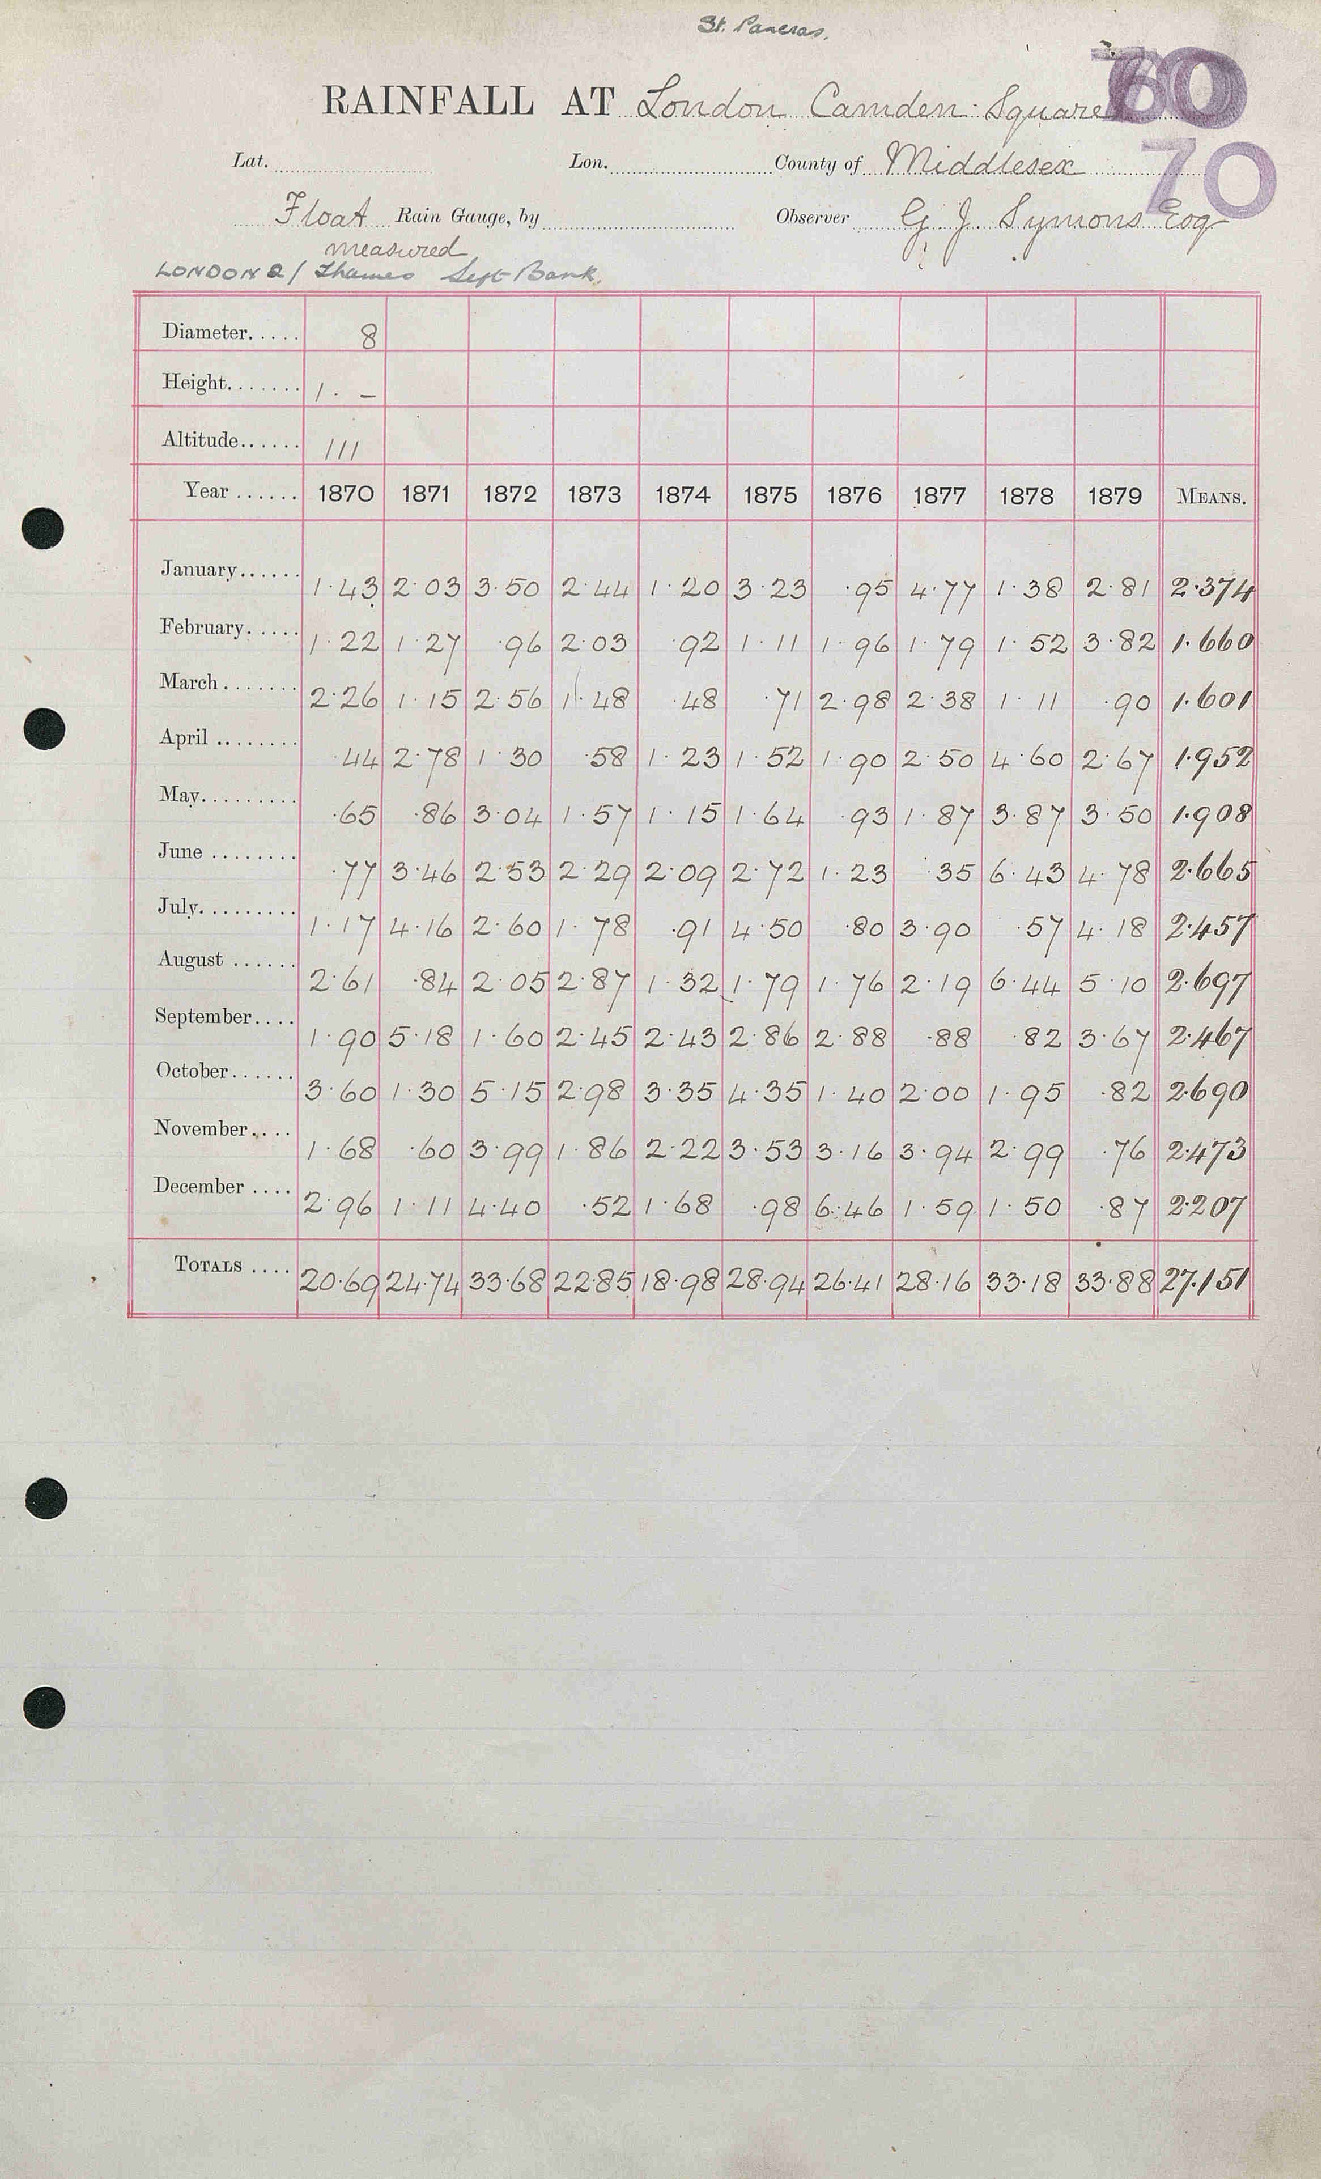 St. Pancras.
RAINFALL AT London Camden Square
70
Lat. Lon. County of Middlesex
Float Rain Gauge, by Observer G. J. Symons Esq
measured
LONDON 2/ Thames Left Bank.
Diameter..... 8
Height....... 1. –
Altitude...... 111
Year ...... 1870 1871 1872 1873 1874 1875 1876 1877 1878 1879 MEANS.
January...... 1.43 2.03 3.50 2.44 1.20 3.23 .95 4.77 1.38 2.81 2.374
February..... 1.22 1.27 .96 2.03 .92 1.11 1.96 1.79 1.52 3.82 1.660
March....... 2.26 1.15 2.56 1.48 .48 .71 2.98 2.38 1.11 .90 1.601
April ........ .44 2.78 1.30 .58 1.23 1.52 1.90 2.50 4.60 2.67 1.952
May......... .65 .86 3.04 1.57 1.15 1.64 .93 1.87 3.87 3.50 1.908
June ........ .77 3.46 2.53 2.29 2.09 2.72 1.23 .35 6.43 4.78 2.665
July......... 1.17 4.16 2.60 1.78 .91 4.50 .80 3.90 .57 4.18 2.457
August ...... 2.61 .84 2.05 2.87 1.32 1.79 1.76 2.19 6.44 5.10 2.697
September.... 1.90 5.18 1.60 2.45 2.43 2.86 2.88 .88 .82 3.67 2.467
October...... 3.60 1.30 5.15 2.98 3.35 4.35 1.40 2.00 1.95 .82 2.690
November.... 1.68 .60 3.99 1.86 2.22 3.53 3.16 3.94 2.99 .76 2.473
December .... 2.96 1.11 4.40 .52 1.68 .98 6.46 1.59 1.50 .87 2.207
TOTALS .... 20.69 24.74 33.68 22.85 18.98 28.94 26.41 28.16 33.18 33.88 27.151